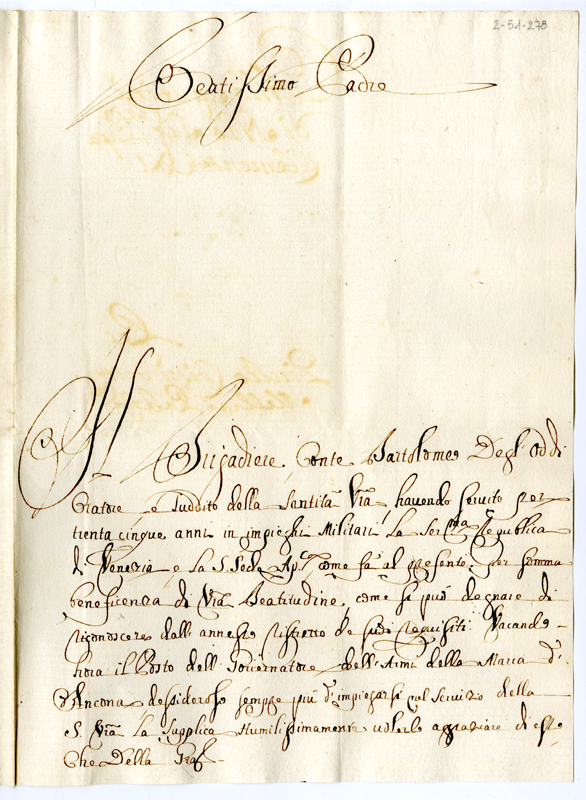 2-51-278
Beatissimo Padre
Il Brigadiere Conte Bartolomeo Degl'Oddi
Oratore, e suddito della Santità Vra havendo servito per
trenta cinque anni in impieghi Militari la Serma Republica
di Venezia e la S. Sede Apca come fà al presente per somma
beneficenza di Vra Beatitudine, come si può degnare di
riconoscere dall'annesso ristretto de suoi requisiti. Vacando
hora il Posto dell Governatore dell'Armi della Marca d'
Ancona desideroso sempre più d'impiegarsi nel Servizio della
S. Vra La Supplica Humilissimamente volerlo aggraziare di esso
Che Della Graz